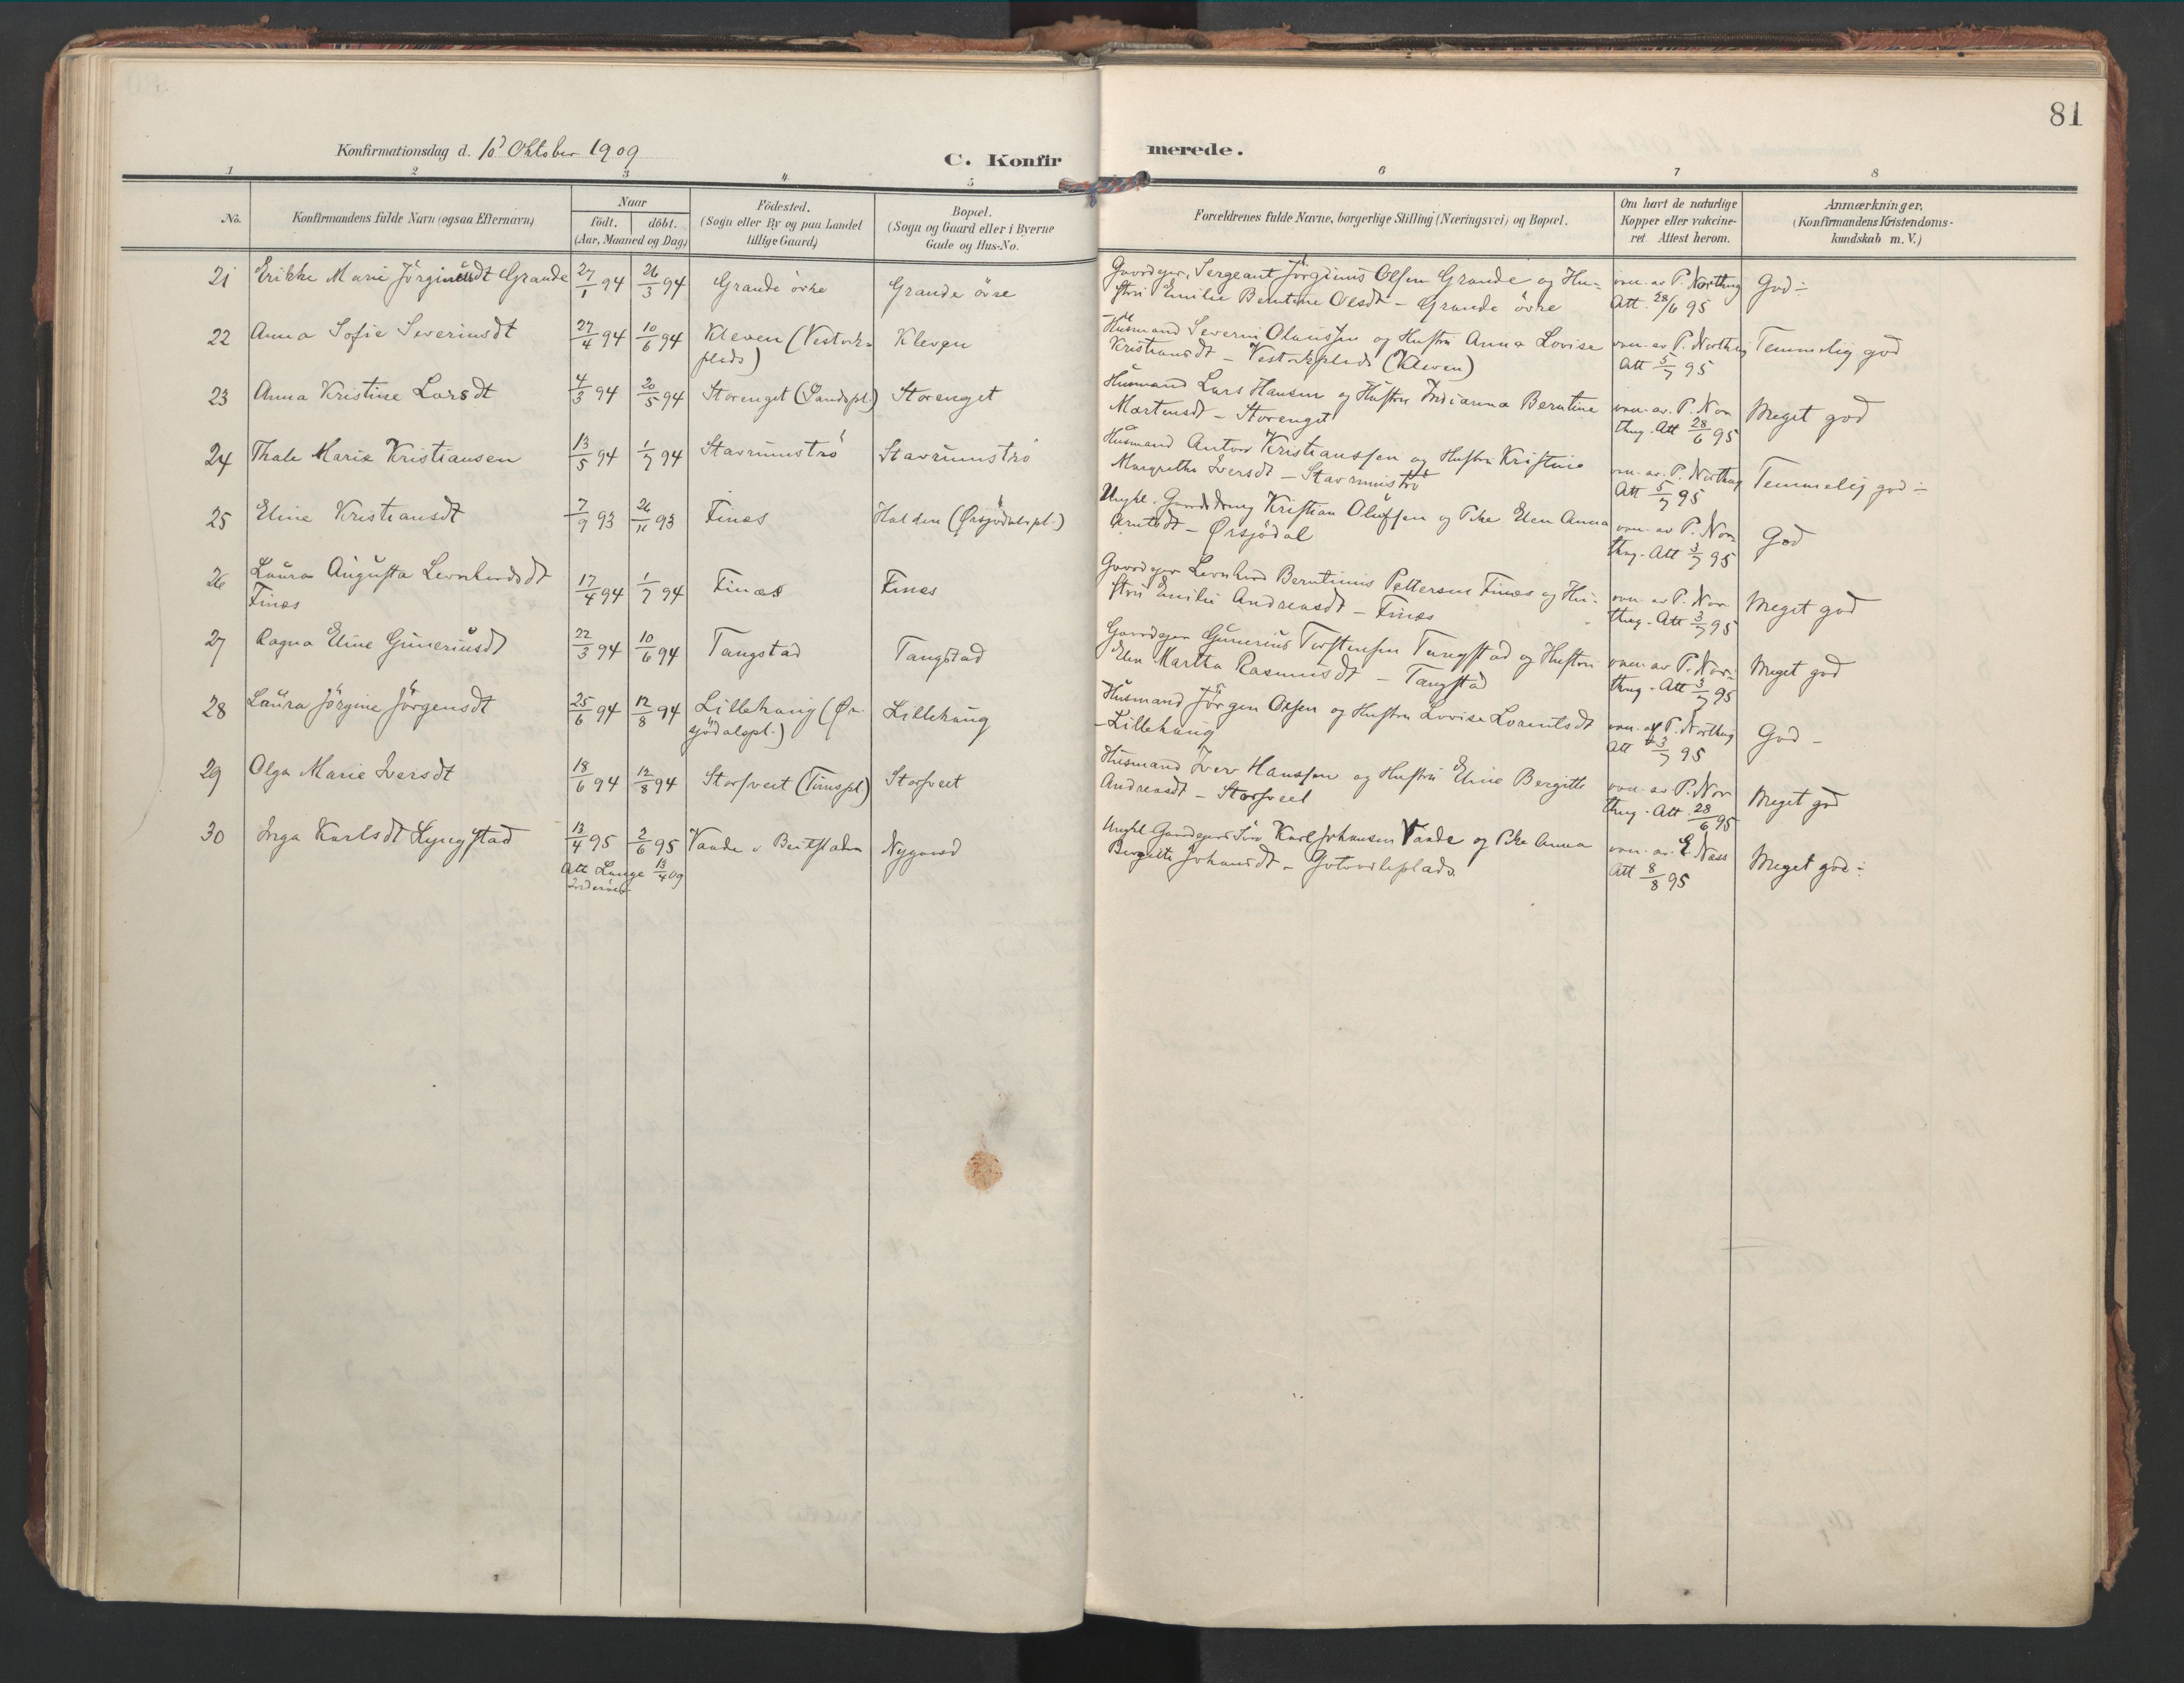 81
Konfirmationsdag d. 10' Oktober 1909
C. Konfirmerede.
1 2 3 4 5 6 7 8
No.
Konfirmandens fulde Navn (ogsaa Efternavn)
Naar
födt. döbt.
(Aar, Maaned og Dag)
Födested.
(Sogn eller By og paa Landet
tillige Gaard)
Bopæl.
(Sogn og Gaard eller i Byerne
Gade og Hus-No.
Forældrenes fulde Navne, borgerlige Stilling (Næringsvei) og Bopæl.
Om havt de naturlige
Kopper eller vakcine-
ret Attest herom.
Anmærkninger.
(Konfirmandens Kristendoms-
kundskab m. V.)
21 Erikke Marie Jörginusdt Grande 27/1 94 26/3 94 Grande övre Grande övre
Gaardejer, Sergeant Jörginus Olsen Grande og Hu-
stru Emilie Berntine Olsdt - Grande övre
vac. av P. Northug
Att. 28/6 95
God -
22 Anna Sofie Severinsdt 27/4 94 10/6 94 Kleven (Vestvik-
plads) Kleven
Husmand Severin Olaussen og Hustru Anna Lovise
Kristiansdt - Vestvikplads (Kleven)
vac. av P. Northug
Att 5/7 95
Temmelig god
23 Anna Kristine Larsdt 4/3 94 20/5 94 Storenget (Sandspl.) Storenget
Husmand Lars Hansen og Hustru Indianna Berntine
Martinsdt - Storenget
vac. av. P. Nor
thug. Att 28/6 95
Meget god
24 Thale Marie Kristiansen 13/5 94 1/7 94 Stavrumströ Stavrumströ
Husmand Anton Kristianssen og Hustru Kristine
Margrethe Iversdt - Stavrumströ
vac. av. P. Northug
Att 5/7 95
Temmelig god -
25 Eline Kristiansdt 7/9 93 26/11 93 Finæs Halden (Ørsjödalspl.)
Ungkl. Gaardsdreng Kristian Olufsen og Pike Elen Anna
Arntsdt - Ørsjödal
vac. av P. Nor-
thug. Att 3/7 95
God
26 Laura Augusta Leonhardsdt
Finæs 17/4 94 1/7 94 Finæs Finæs
Gaardejer Leonhard Berntinius Pettersen Finæs og Hu-
stru Emilie Andreasdt - Finæs
vac. av P. Nor
thug. Att 3/7 95
Meget god
27 Ragna Eline Guneriusdt 22/3 94 10/6 94 Tangstad Tangstad
Gaardejer Gunerius Torstensen Tangstad og Hustru
Elen Martha Rasmusdt - Tangstad
vac. av P. Nor-
thug. Att 3/7 95
Meget god
28 Laura Jörgine Jörgensdt 25/6 94 12/8 94 Lillehaug (Ør-
sjödalspl.) Lillehaug
Husmand Jörgen Olsen og Hustru Lovise Lorentsdt
- Lillehaug
vac. af P. Northug
Att 3/7 95
God -
29 Olga Marie Iversdt 18/6 94 12/8 94 Storsveet (Finæspl) Storsveet
Husmand Iver Hanssen og Hustru Eline Bergitte
Andreasdt - Storsveet
vac. av P. Nor
thug. Att. 28/6 95
Meget god
30 Inga Karlsdt Lyngstad 13/4 95 2/6 95 Vaade i Beitstaden Nygaard
Att Lange 13/4 09
Inderöen
Ungkl. Gaardejers Søn Karl Johansen Vaade og Pike Anna
Bergitte Johansdt - Gotvasliplads
vac. av. E Næss
Att 8/8 95
Meget god -